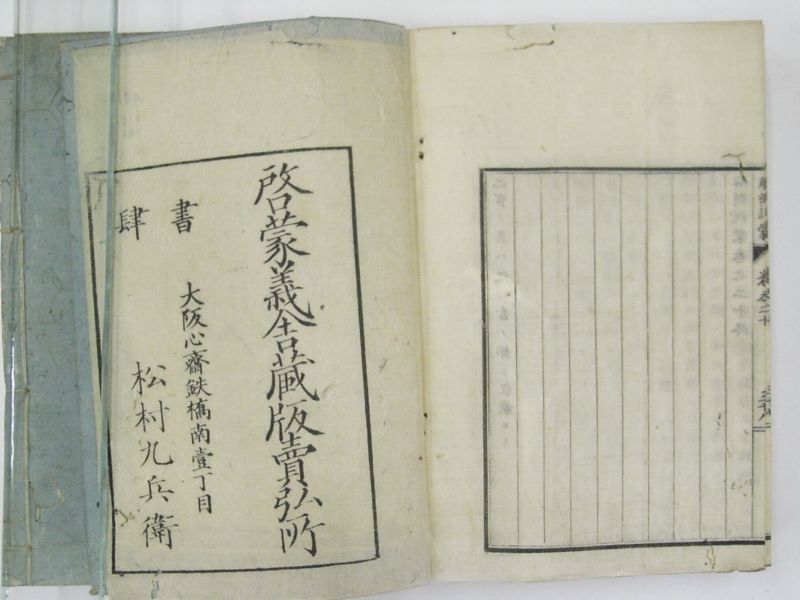 啓蒙義舍蔵版賣弘所
書肆
大阪心齋鉄橋南壹丁目
松村九兵衞